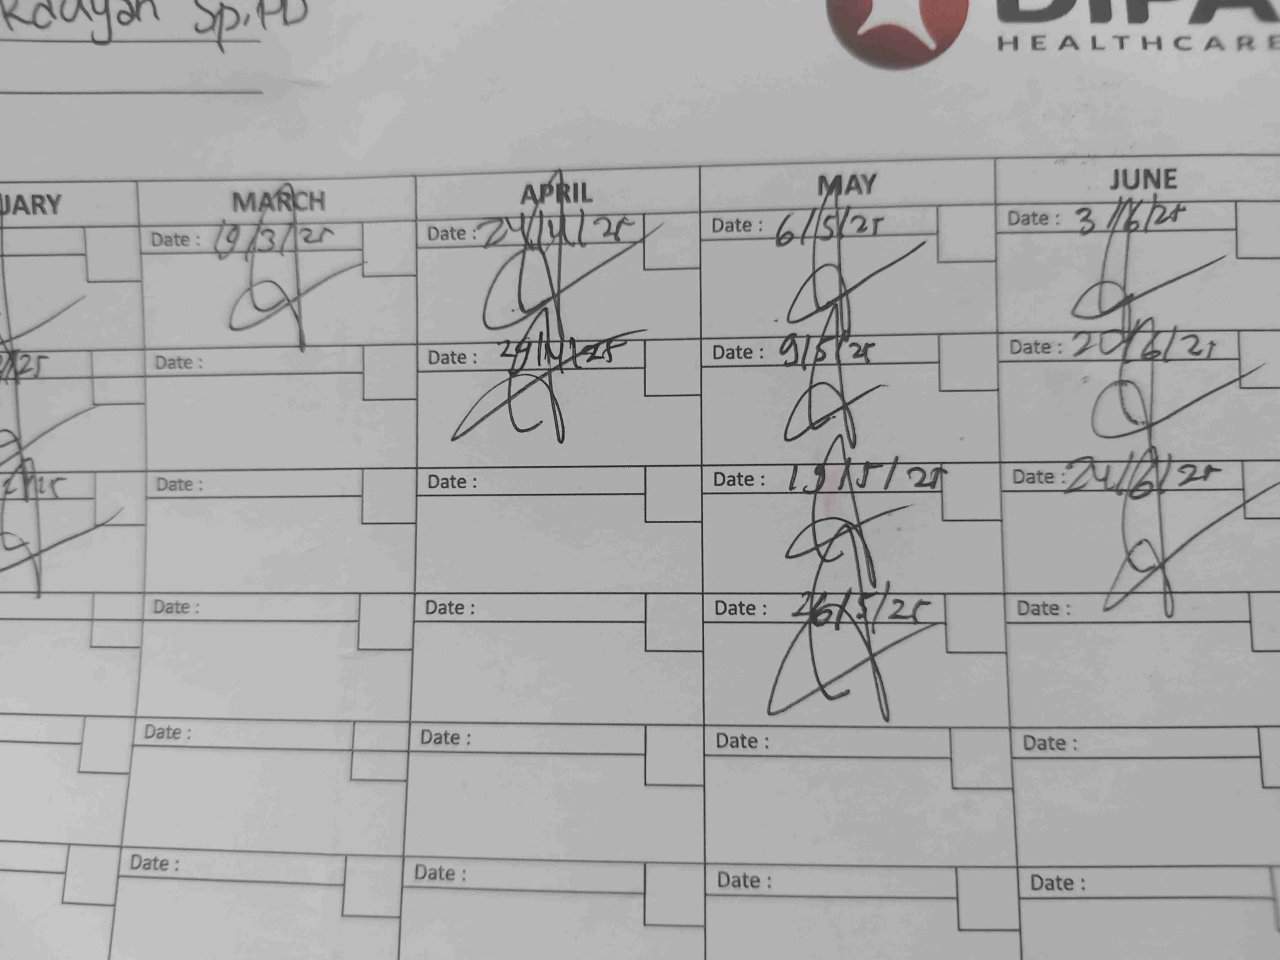 Sp.PD
HEALTHCARE
MARCH APRIL MAY JUNE
Date : 19/3/25 Date : 24/4/25 Date : 6/5/25 Date : 3/6/25
Date : Date : 29/4/25 Date : 9/5/25 Date : 20/6/25
Date : Date : Date : 19/5/25 Date : 24/6/25
Date : Date : Date : 26/5/25 Date :
Date : Date : Date : Date :
Date : Date : Date : Date :